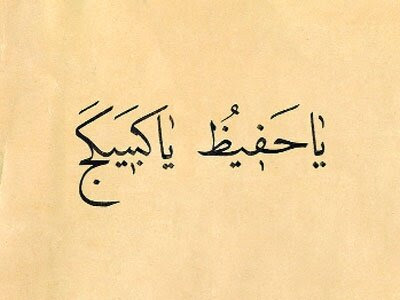 يا حَفِيظُ يا كَبِيكَجَ